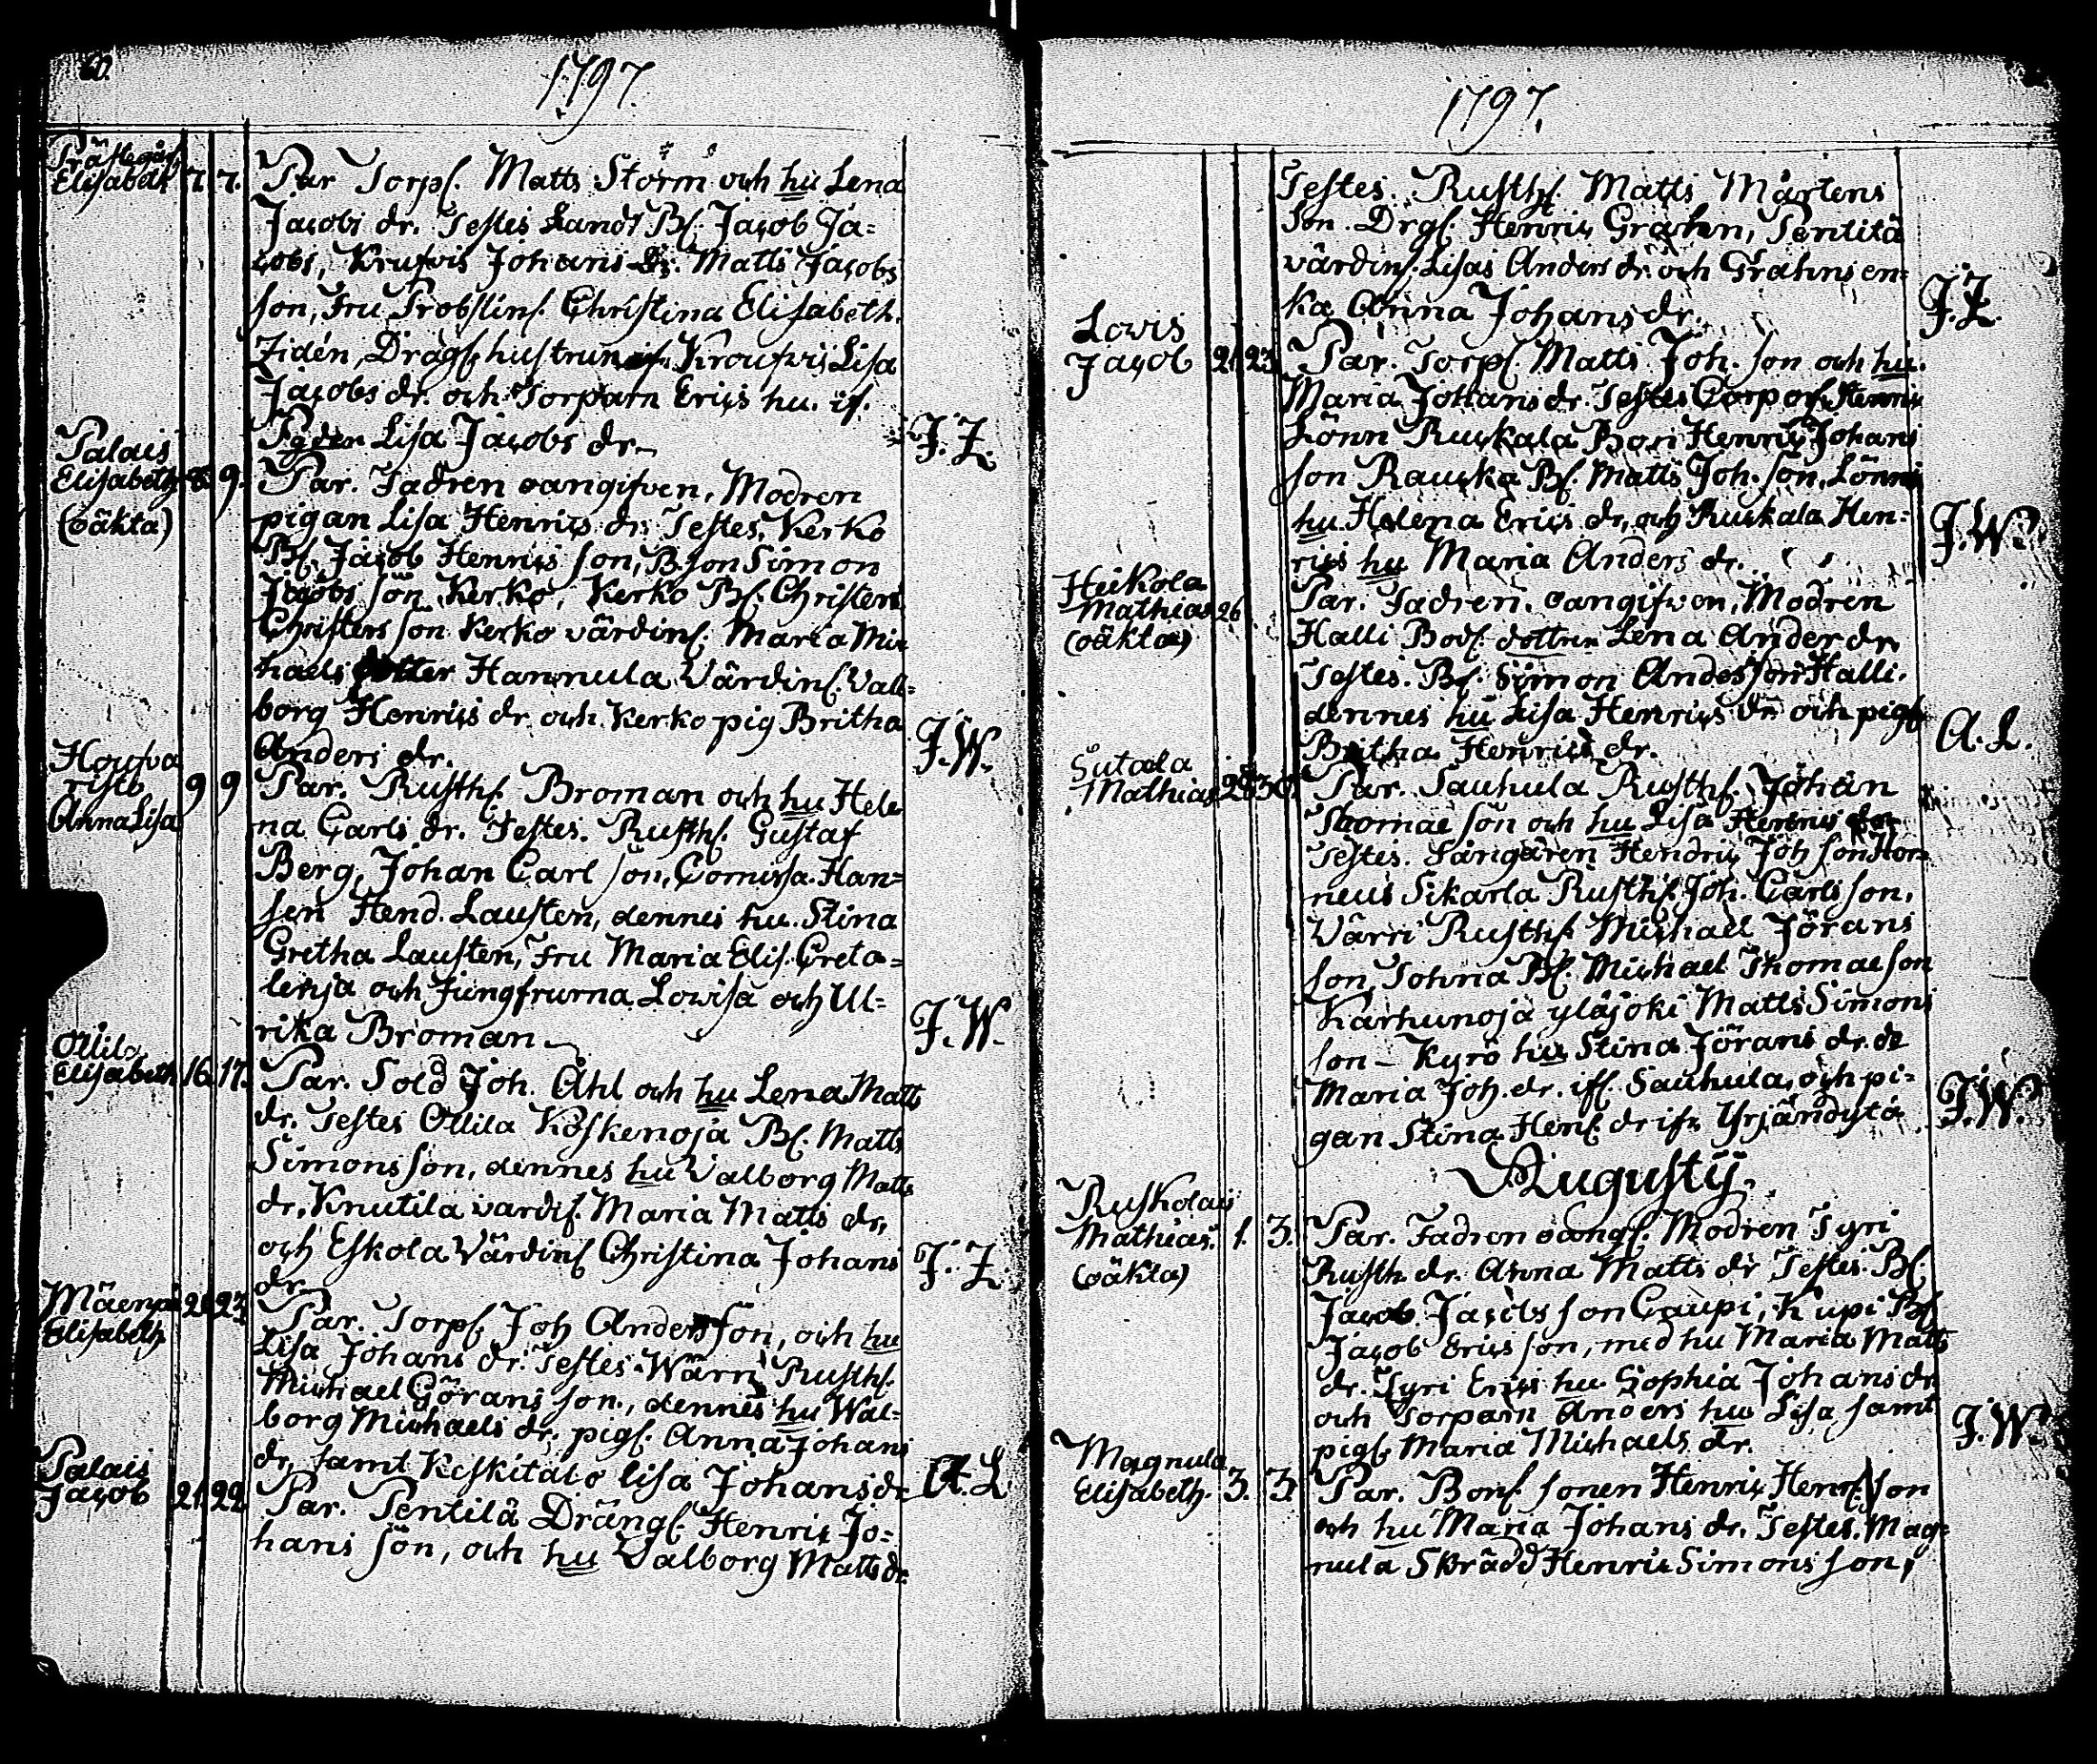 60.
1797.
Prästegår
Elisabeth 7. 7. Par Torps. Matts Storm och hu Lena
Jacobs dr. Testes Landt Bs. Jacob Ja=
cobs, Krufvis Johans Matts Jacobs
son, Fru Probstins. Christina Elisabeth.
Zidén, Drägs hustrun Kroufvis Lisa
Jacobs dr. och Torparn Erics hu. if.
Lisa Jacobs dr. J. Z.
Palais
Elisabeth 8. 9. Par. Fadren oangifven, Modren
(oäkta) pigan Lisa Henrics dr. Testes, Kerko
Bs. Jacob Henrics son, B.son Simon
Jacobs son Kerko, Kerko Bs. Christers
Christers son Kerko värdins. Maria Mic
haels dotter Hannula Värdins. Vall=
borg Henrics dr. och Kerko pig Britha
Anders dr. J. W.
Houfva
risto 9 9 Par. Rusths. Broman och hu Hele
Anna Lisa na Carls dr. Testes. Rusths. Gustaf
Berg, Johan Carl son, Comissa. Han=
sen Hend. Lausten, dennes hu. Stina
Gretha Lausten, Fru Maria Elis. Creta=
lenja och Jungfrurna Lowisa och Ul=
rika Broman J. W.
Ollila
Elisabeth 16. 17. Par. Sold Joh. Åhl och hu Lena Matts
dr. Testes Ollila Koskenoja Bs. Matts
Simons son, dennes hu Valborg Matts
dr. Knutila vardis. Maria Matts dr.
och Eskola Värdins Christina Johans
dr. J. Z.
Mäenpä 21 23. Par. Torps. Joh Anders son, och hu
Elisabeth Lisa Johans dr. Testes Wärri Rusths.
Michael Görans son, dennes hu Wal=
borg Michaels dr. pigs. Anna Johans
dr, samt Keskitalo lisa Johans dr A. L.
Palais
Jacob 21. 22. Par. Pentilä Drängs. Henric Jo=
hans son, och hu Valborg Matts dr.
1797.
Testes. Rusths Matts Mårtens
son. Drgs. Henric Grahn, Pentilä
värdins. Lisas Anders dr. och Grahns en=
ka Anna Johans dr. J. Z.
Lovis
Jacob 21. 23. Par. Torps. Matts Joh. son och hu.
Maria Johans dr. Testes Corpors. Henric
Lönn Ruskala Bon Henric Johans
son Rauska Bs. Matts Joh. son, Lönns
hu. Helena Erics dr, och Ruskala Hen=
rics hu Maria Anders dr. J. W.
Heikola
Mathias 26 Par. Fadren. oangifven, Modren
(oäkta) Halli Bods. dottren Lena Ander dr,
Testes. Bs. Simon Anders son Halli.
dennes hu Lisa Henrics dr och pigs
Britha Henrics dr. A. L.
Sutala
Mathias 28 30. Par. Sauhula Rusths. Johan
Thomæ son och hu Lisa Henrics dr
Testes. Sångaren Hendric Joh son Hor=
neus Sikarla Rusths. Joh. Carls son,
Värri Rusths Michael Jörans
son, Tohna Bs. Michael Thomæ son
Karhunoja yläjoki Matts Simons
son - Kyrö hu Stina Jörans dr. de
Maria Joh. dr. ifs. Sauhula, och pi=
gan Stina Hens dr ifr. Yrjändystä J. W.
Augustij.
Ruskolais
Mathias. 1. 3. Par. Fadren oangs. Modren Tyri
(oäkta) Rusth dr. Anna Matts dr Testes. Bs.
Jacob. Jacobs son Caupi, Kupi Bs
Jacob Erics son, med hu Maria Matts
dr. Tyri Erics hu. Sophia Johans dr.
och Torparn Anders hu Lisa, samt
pigs. Maria Michaels dr. J. W.
Magnula
Elisabeth. 3. 3. Par. Bons. sonen Henric Henr. son
och hu Maria Johans dr. Testes. Mag=
nula Skrädd Henric Simons son,